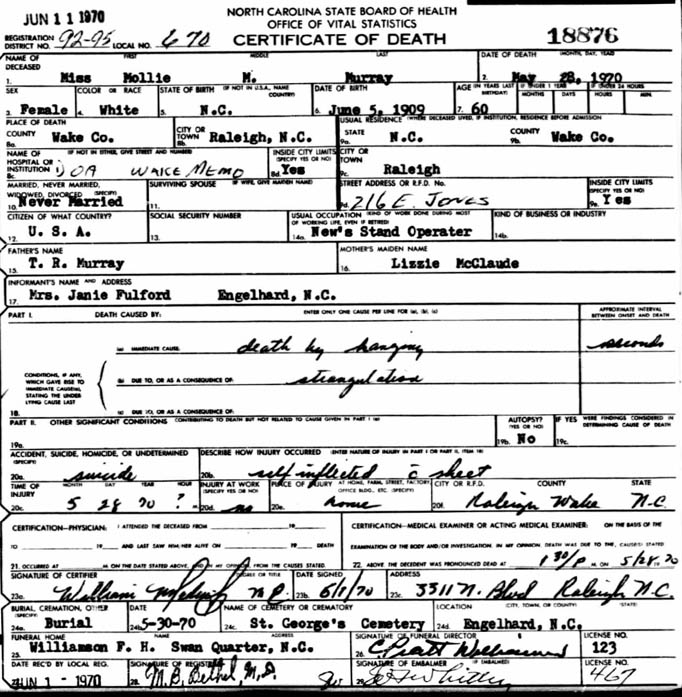 JUN 11 1970
NORTH CAROLINA STATE BOARD OF HEALTH
OFFICE OF VITAL STATISTICS
REGISTRATION DISTRICT NO. 92-95 LOCAL NO. 670 CERTIFICATE OF DEATH 18876
NAME OF DECEASED FIRST MIDDLE LAST DATE OF DEATH (MONTH, DAY, YEAR)
1. Miss Mollie M. Murray 2. May 28, 1970
SEX COLOR OR RACE STATE OF BIRTH (IF NOT IN U.S.A., NAME COUNTRY) DATE OF BIRTH AGE (IN YEARS LAST BIRTHDAY) IF UNDER 1 YEAR MONTHS DAYS IF UNDER 24 HOURS HOURS MIN.
3. Female 4. White 5. N.C. 6. June 5, 1909 7. 60
PLACE OF DEATH USUAL RESIDENCE (WHERE DECEASED LIVED, IF INSTITUTION, RESIDENCE BEFORE ADMISSION)
COUNTY Wake Co. CITY OR TOWN Raleigh, N.C. STATE N.C. COUNTY Wake Co.
8a. 8b. 9a. 9b.
NAME OF HOSPITAL OR INSTITUTION (IF NOT IN EITHER, GIVE STREET AND NUMBER) INSIDE CITY LIMITS (SPECIFY YES OR NO) CITY OR TOWN
8c. DOA WAKE MEMO 8d. Yes 9c. Raleigh
MARRIED, NEVER MARRIED, WIDOWED, DIVORCED (SPECIFY) SURVIVING SPOUSE (IF WIFE, GIVE MAIDEN NAME) STREET ADDRESS OR R.F.D. No. INSIDE CITY LIMITS (SPECIFY YES OR NO)
10. Never Married 11. 9d. 216 E. JONES 9e. Yes
CITIZEN OF WHAT COUNTRY? SOCIAL SECURITY NUMBER USUAL OCCUPATION (KIND OF WORK DONE DURING MOST OF WORKING LIFE, EVEN IF RETIRED) KIND OF BUSINESS OR INDUSTRY
12. U. S. A. 13. 14a. New's Stand Operater 14b.
FATHER'S NAME MOTHER'S MAIDEN NAME
15. T. R. Murray 16. Lizzie McClaude
INFORMANT'S NAME AND ADDRESS
17. Mrs. Janie Fulford Engelhard, N.C.
PART I. DEATH CAUSED BY: ENTER ONLY ONE CAUSE PER LINE FOR (a), (b), (c) APPROXIMATE INTERVAL BETWEEN ONSET AND DEATH
(a) IMMEDIATE CAUSE death by hanging seconds
CONDITIONS, IF ANY, WHICH GAVE RISE TO IMMEDIATE CAUSE(a), STATING THE UNDERLYING CAUSE LAST
(b) DUE TO, OR AS A CONSEQUENCE OF: strangulation
18. (c) DUE TO, OR AS A CONSEQUENCE OF:
PART II. OTHER SIGNIFICANT CONDITIONS CONTRIBUTING TO DEATH BUT NOT RELATED TO CAUSE GIVEN IN PART I (a) AUTOPSY? (YES OR NO) IF YES WERE FINDINGS CONSIDERED IN DETERMINING CAUSE OF DEATH
19a. 19b. No 19c.
ACCIDENT, SUICIDE, HOMICIDE, OR UNDETERMINED (SPECIFY) DESCRIBE HOW INJURY OCCURRED (ENTER NATURE OF INJURY IN PART I OR PART II, ITEM 18)
20a. suicide 20b. self inflected c̄ sheet
TIME OF INJURY MONTH DAY YEAR HOUR INJURY AT WORK (SPECIFY YES OR NO) PLACE OF INJURY AT HOME, FARM, STREET, FACTORY, OFFICE BLDG., ETC. (SPECIFY) CITY OR R.F.D. COUNTY STATE
20c. 5 28 70 ? M. 20d. no 20e. home 20f. Raleigh Wake N.C.
CERTIFICATION—PHYSICIAN: I ATTENDED THE DECEASED FROM 19 CERTIFICATION—MEDICAL EXAMINER OR ACTING MEDICAL EXAMINER: ON THE BASIS OF THE
TO 19 AND LAST SAW HIM/HER ALIVE ON 19 DEATH EXAMINATION OF THE BODY AND/OR INVESTIGATION, IN MY OPINION, DEATH WAS DUE TO THE CAUSE(S) STATED
21. OCCURRED AT M. ON THE DATE STATED ABOVE, AND TO MY OPINION FROM THE CAUSES STATED. 22. ABOVE THE DECEDENT WAS PRONOUNCED DEAD AT 1 30/P M. ON 5/28 70
SIGNATURE OF CERTIFIER DEGREE OR TITLE DATE SIGNED ADDRESS (CITY, TOWN, OR COUNTY) (STATE)
23a. William M.D. 23b. 6/1/70 23c. 3311 N. Blvd Raleigh N.C.
BURIAL, CREMATION, OTHER (SPECIFY) DATE NAME OF CEMETERY OR CREMATORY LOCATION
24a. Burial 24b. 5-30-70 24c. St. George's Cemetery 24d. Engelhard, N.C.
FUNERAL HOME NAME ADDRESS SIGNATURE OF FUNERAL DIRECTOR LICENSE NO.
25. Williamson F. H. Swan Quarter, N.C. 26. 123
DATE REC'D BY LOCAL REG. SIGNATURE OF REGISTRAR SIGNATURE OF EMBALMER (IF EMBALMED) LICENSE NO.
JUN 1 - 1970 28. M.B. Bethel, M.D. 467